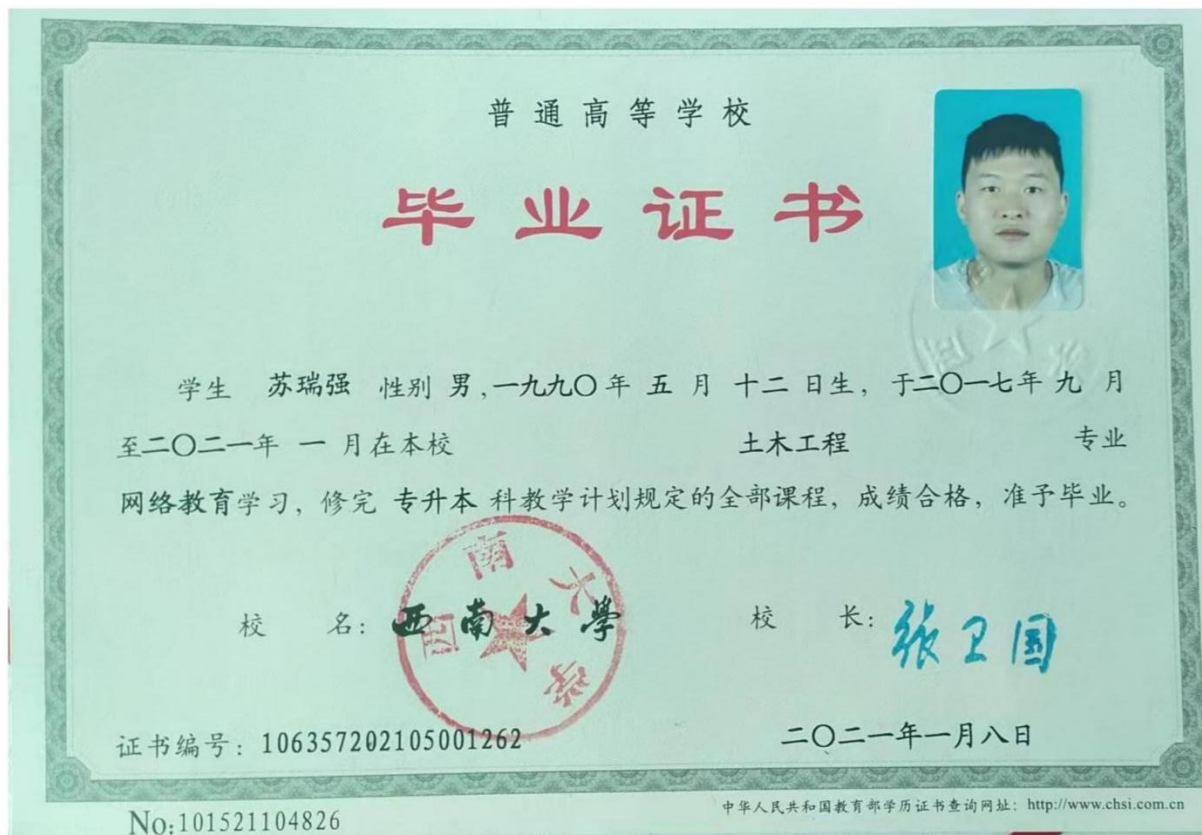 普通高等学校
毕业证书
学生 苏瑞强 性别 男，一九九〇年 五 月 十二 日生，于二〇一七年 九 月
至二〇二一年 一 月在本校 土木工程 专业
网络教育学习，修完 专升本 科教学计划规定的全部课程，成绩合格，准予毕业。
校 名：西南大學
西南大學
校 长：张卫国
证书编号：106357202105001262
二〇二一年一月八日
No:101521104826
中华人民共和国教育部学历证书查询网址：http://www.chsi.com.cn